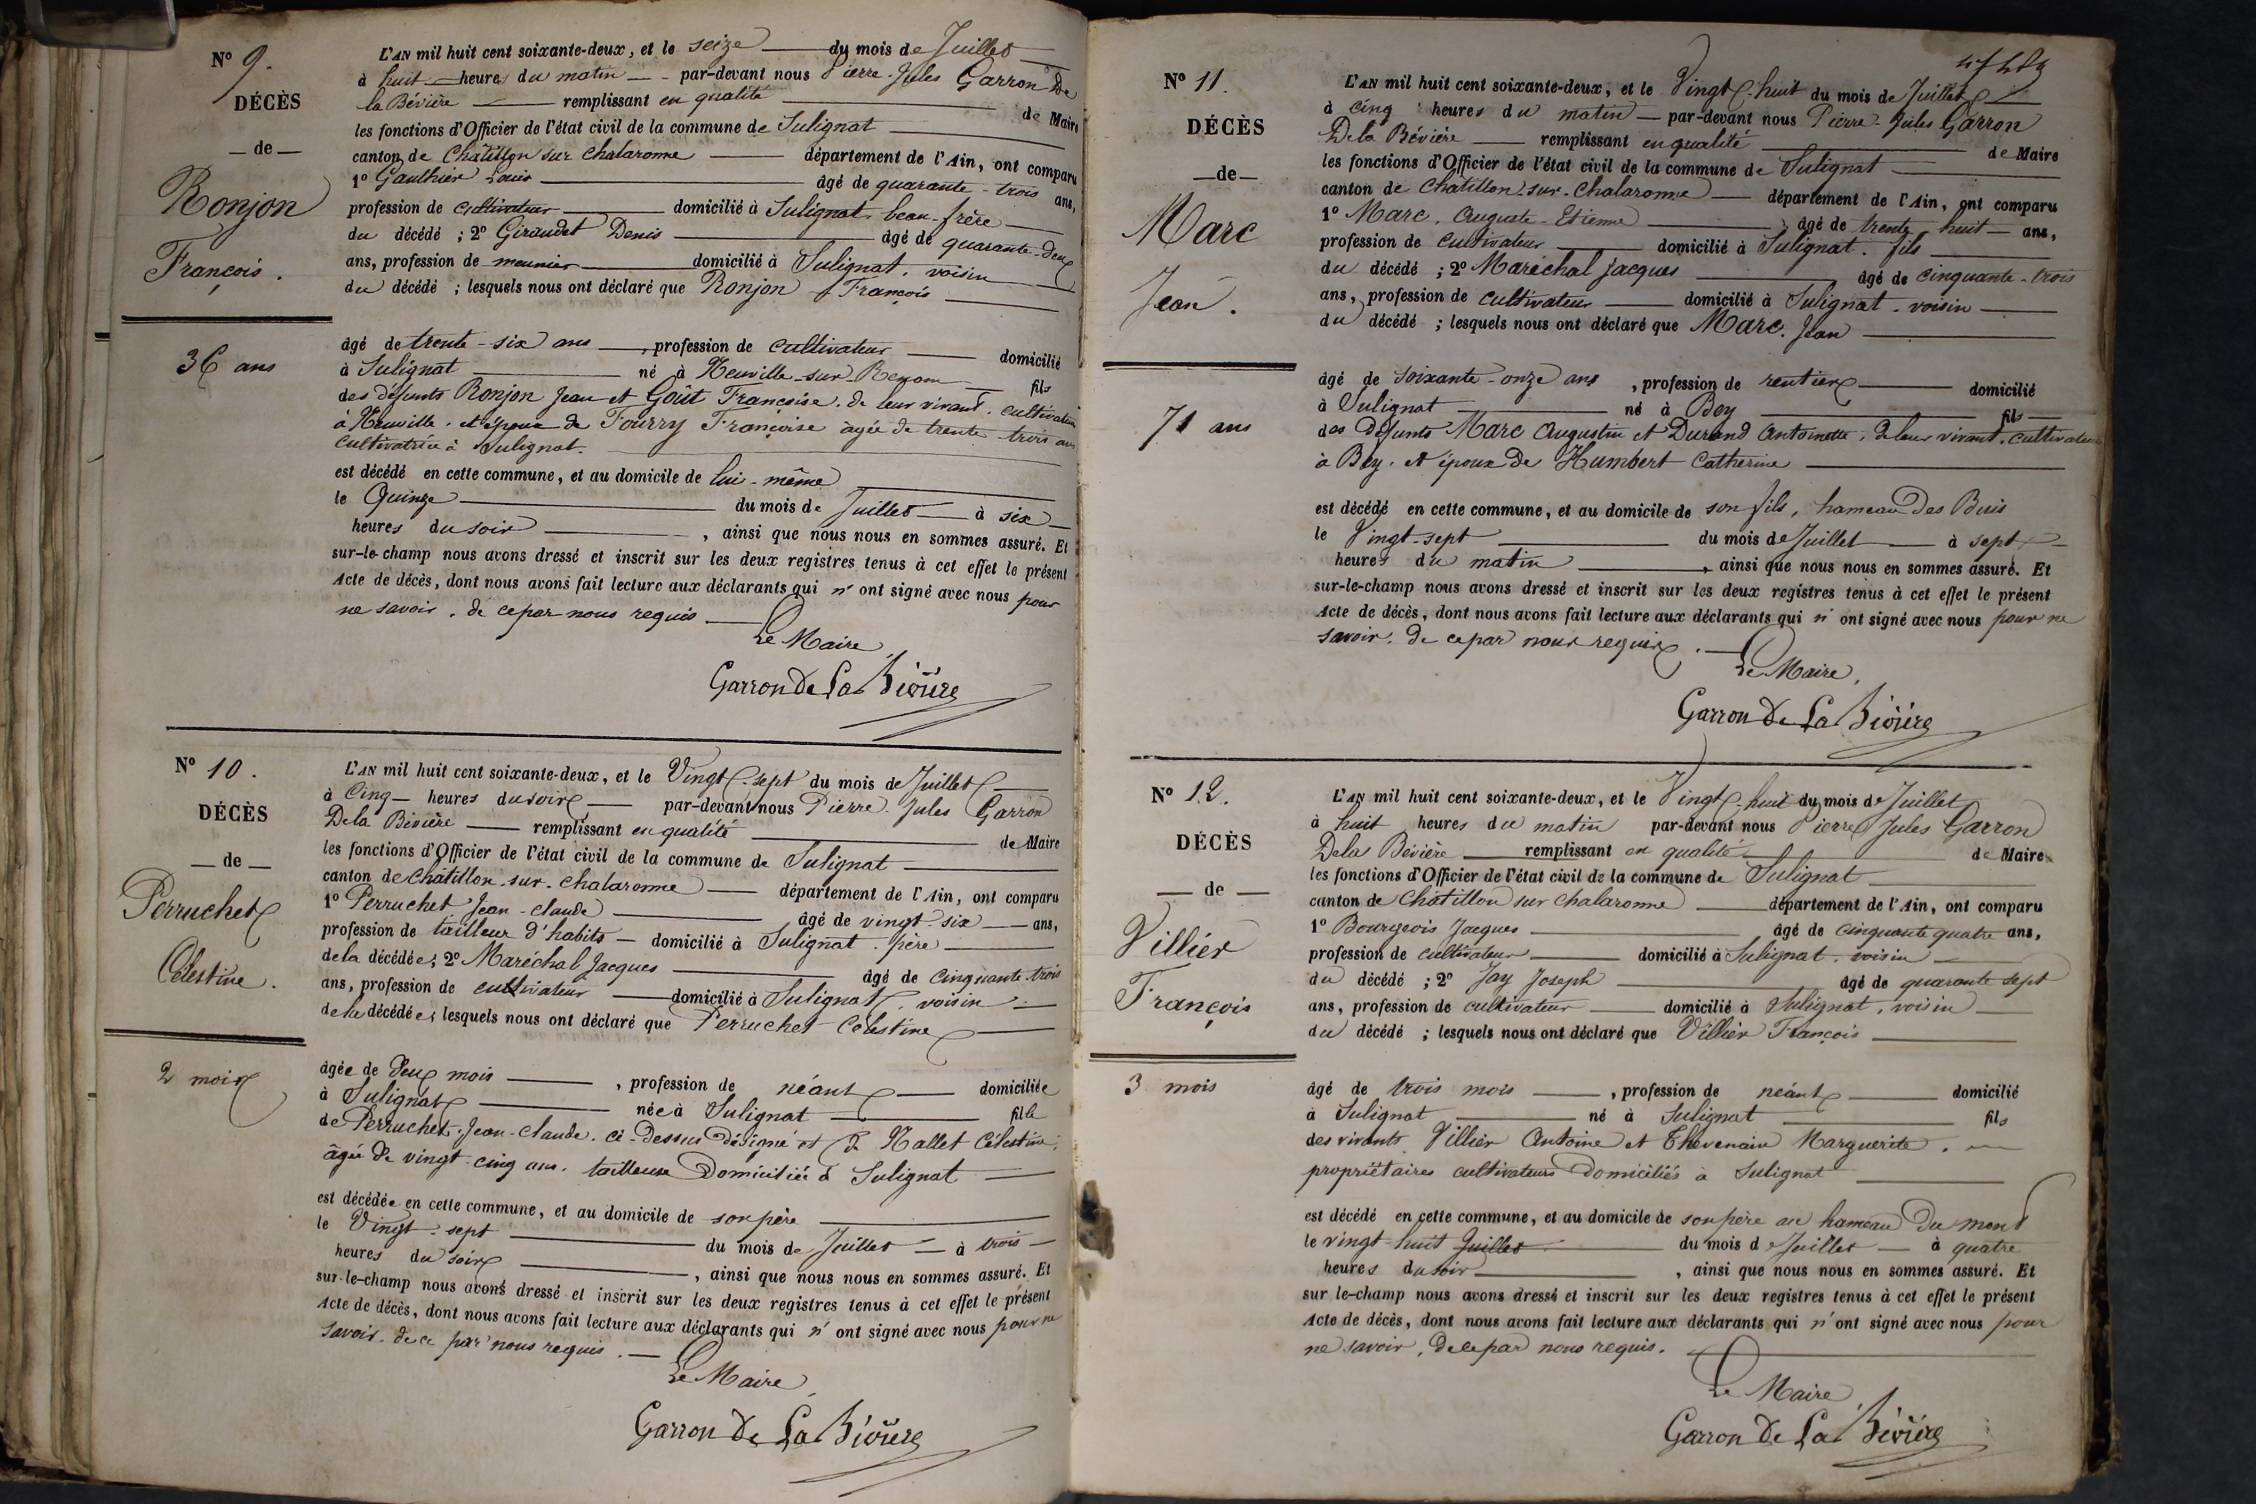 N° 9.
DÉCÈS
— de —
Ronjon
François.
36 ans
L'AN mil huit cent soixante-deux, et le seize du mois de Juillet
à huit heures du matin par-devant nous Pierre-Jules Garron De
la Bévière remplissant en qualité de Maire
les fonctions d'Officier de l'état civil de la commune de Sulignat
canton de Châtillon sur Chalaronne département de l'Ain, ont comparu
1° Gaulthier Louis âgé de quarante-trois ans,
profession de cultivateur domicilié à Sulignat, beau-frère
du décédé ; 2° Giraudet Denis âgé de quarante-deux
ans, profession de meunier domicilié à Sulignat, voisin
du décédé ; lesquels nous ont déclaré que Ronjon François
âgé de trente-six ans, profession de cultivateur domicilié
à Sulignat né à Neuville-sur-Renom fils
des défunts Ronjon Jean et Goût Françoise, de leur vivant, cultivateurs
à Neuville, et époux de Fourry Françoise âgée de trente-trois ans
cultivatrice à Sulignat.
est décédé en cette commune, et au domicile de lui-même
le Quinze du mois de Juillet à six
heures du soir, ainsi que nous nous en sommes assuré. Et
sur-le-champ nous avons dressé et inscrit sur les deux registres tenus à cet effet le présent
Acte de décès, dont nous avons fait lecture aux déclarants qui n'ont signé avec nous pour
ne savoir, de ce par nous requis.
Le Maire
Garron De La Bévière
N° 10.
DÉCÈS
— de —
Perruchet
Célestine.
2 mois
L'AN mil huit cent soixante-deux, et le Vingt-sept du mois de Juillet
à Cinq heures du soir par-devant nous Pierre-Jules Garron
De la Bévière remplissant en qualité de Maire
les fonctions d'Officier de l'état civil de la commune de Sulignat
canton de Châtillon-sur-Chalaronne département de l'Ain, ont comparu
1° Perruchet Jean-Claude âgé de vingt-six ans,
profession de tailleur d'habits domicilié à Sulignat, père
de la décédée ; 2° Maréchal Jacques âgé de cinquante-trois
ans, profession de cultivateur domicilié à Sulignat, voisin
de la décédée ; lesquels nous ont déclaré que Perruchet Célestine
âgée de deux mois, profession de néant domiciliée
à Sulignat née à Sulignat fille
de Perruchet Jean-Claude, ci-dessus désigné et de Nallet Célestine,
âgée de vingt-cinq ans, tailleuse domiciliée à Sulignat
est décédée en cette commune, et au domicile de son père
le Vingt-sept du mois de Juillet à trois
heures du soir, ainsi que nous nous en sommes assuré. Et
sur-le-champ nous avons dressé et inscrit sur les deux registres tenus à cet effet le présent
Acte de décès, dont nous avons fait lecture aux déclarants qui n'ont signé avec nous pour ne
savoir, de ce par nous requis.
Le Maire
Garron De La Bévière
N° 11.
DÉCÈS
— de —
Marc
Jean.
71 ans
L'AN mil huit cent soixante-deux, et le Vingt-huit du mois de Juillet
à cinq heures du matin par-devant nous Pierre-Jules Garron
De la Bévière remplissant en qualité de Maire
les fonctions d'Officier de l'état civil de la commune de Sulignat
canton de Châtillon-sur-Chalaronne département de l'Ain, ont comparu
1° Marc, Auguste-Etienne âgé de trente-huit ans,
profession de cultivateur domicilié à Sulignat, fils
du décédé ; 2° Maréchal Jacques âgé de cinquante-trois
ans, profession de cultivateur domicilié à Sulignat, voisin
du décédé ; lesquels nous ont déclaré que Marc Jean
âgé de soixante-onze ans, profession de rentier domicilié
à Sulignat né à Bey fils
des défunts Marc Augustin et Durand Antoinette, de leur vivant, cultivateurs
à Bey, et époux de Humbert Catherine
est décédé en cette commune, et au domicile de son fils, hameau des Buis
le Vingt-sept du mois de Juillet à sept
heures du matin, ainsi que nous nous en sommes assuré. Et
sur-le-champ nous avons dressé et inscrit sur les deux registres tenus à cet effet le présent
Acte de décès, dont nous avons fait lecture aux déclarants qui n'ont signé avec nous pour ne
savoir, de ce par nous requis.
Le Maire,
Garron De La Bévière
N° 12.
DÉCÈS
— de —
Villier
François
3 mois
L'AN mil huit cent soixante-deux, et le Vingt-huit du mois de Juillet
à huit heures du matin par-devant nous Pierre Jules Garron
De la Bévière remplissant en qualité de Maire
les fonctions d'Officier de l'état civil de la commune de Sulignat
canton de Châtillon sur Chalaronne département de l'Ain, ont comparu
1° Bourgeois Jacques âgé de cinquante quatre ans,
profession de cultivateur domicilié à Sulignat, voisin
du décédé ; 2° Jay Joseph âgé de quarante sept
ans, profession de cultivateur domicilié à Sulignat, voisin
du décédé ; lesquels nous ont déclaré que Villier François
âgé de trois mois, profession de néant domicilié
à Sulignat né à Sulignat fils
des vivants Villier Antoine et Thevenain Marguerite,
propriétaires cultivateurs domiciliés à Sulignat
est décédé en cette commune, et au domicile de son père au hameau du mont
le vingt-huit Juillet du mois de Juillet à quatre
heures du soir, ainsi que nous nous en sommes assuré. Et
sur-le-champ nous avons dressé et inscrit sur les deux registres tenus à cet effet le présent
Acte de décès, dont nous avons fait lecture aux déclarants qui n'ont signé avec nous pour
ne savoir, de ce par nous requis.
Le Maire
Garron De La Bévière